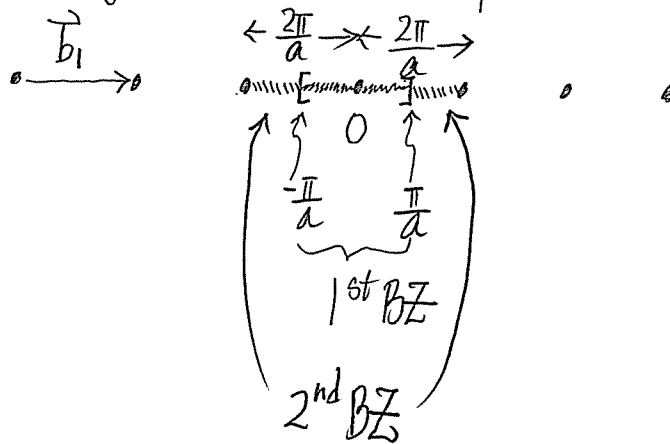 b⃗₁
← 2π/a →← 2π/a →
[ ]
0
-π/a π/a
1st BZ
2nd BZ